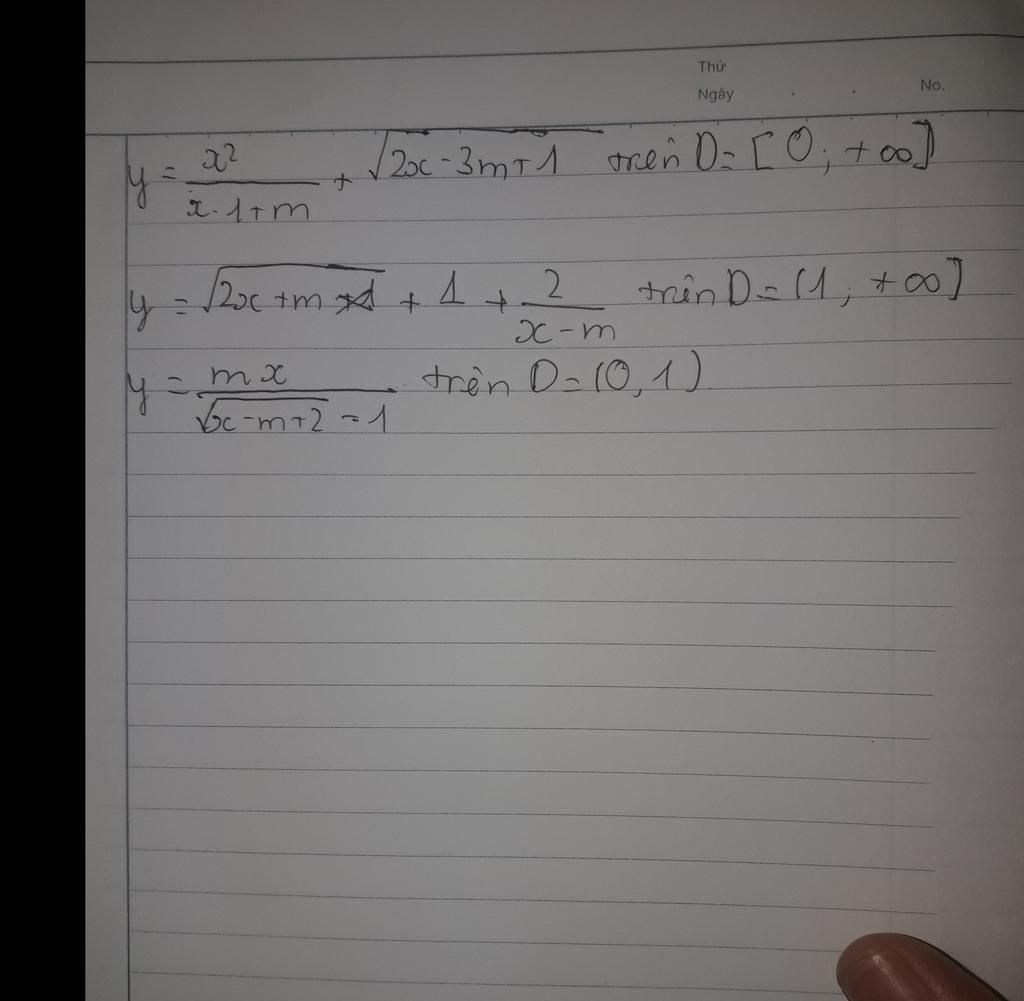 Thứ
Ngày
No.
y = x²/(x-1+m) + √(2x-3m+1) trên D = [0; +∞]
y = √(2x+m) + 1 + 2/(x-m) trên D = (1; +∞]
y = mx/(√(x-m+2) - 1) trên D = (0,1)